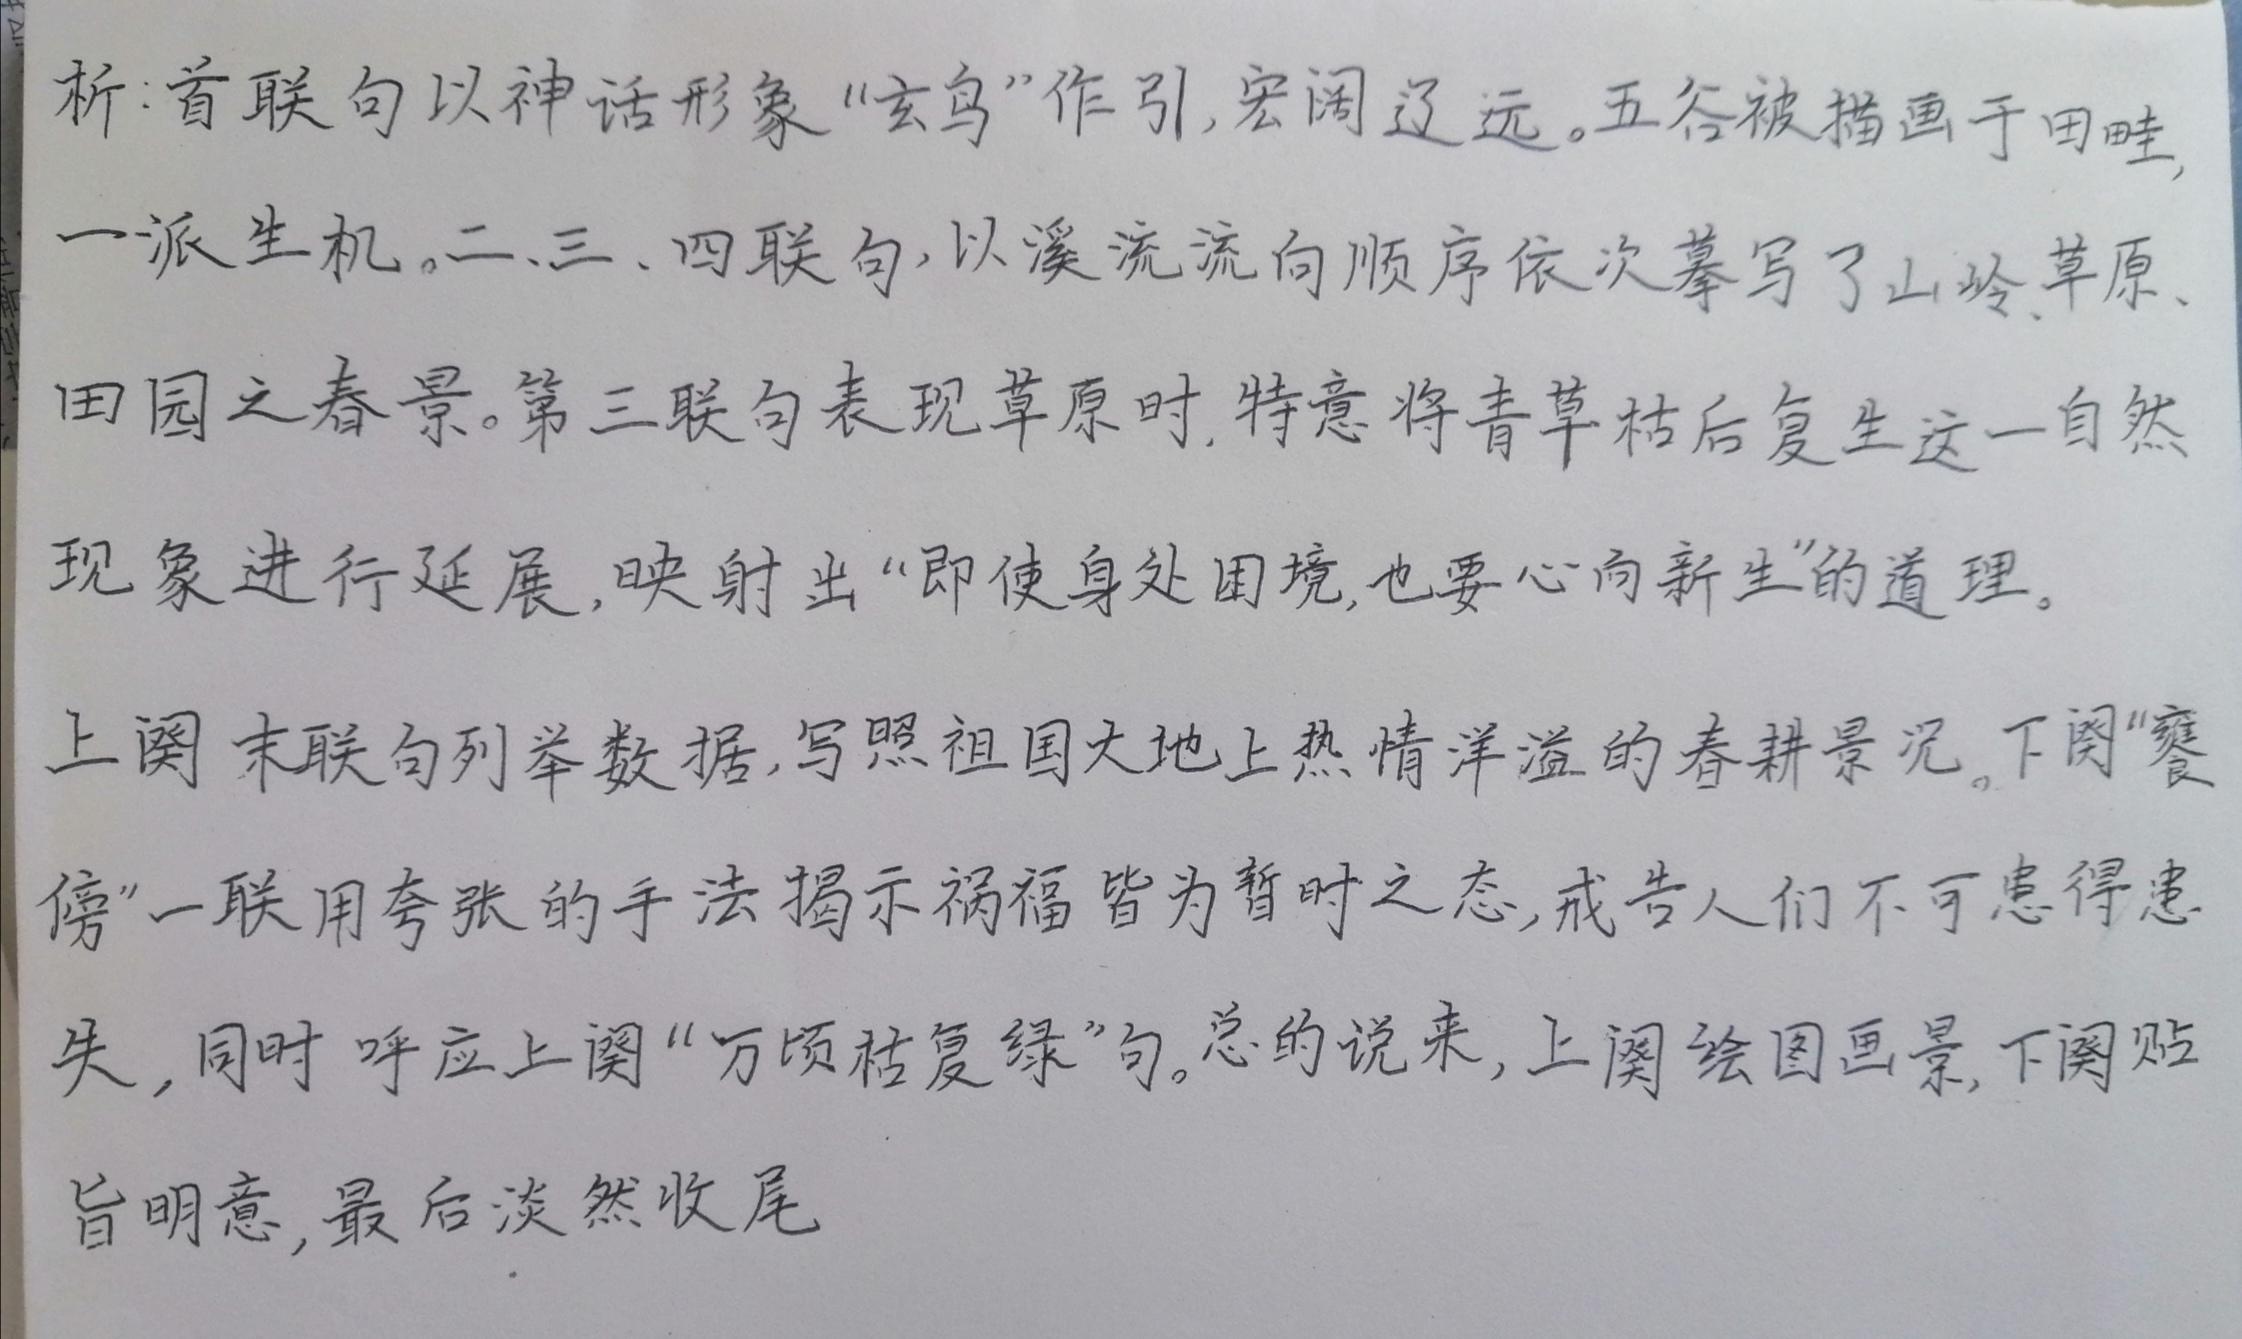 析:首联句以神话形象“玄鸟”作引,宏阔辽远。五谷被描画于田畦,
一派生机。二、三、四联句,以溪流流向顺序依次摹写了山岭、草原、
田园之春景。第三联句表现草原时,特意将青草枯后复生这一自然
现象进行延展,映射出“即使身处困境,也要心向新生”的道理。
上阕末联句列举数据,写照祖国大地上热情洋溢的春耕景况。下阕“饔
傍”一联用夸张的手法揭示祸福皆为暂时之态,戒告人们不可患得患
失,同时呼应上阕“万顷枯复绿”句。总的说来,上阕绘图画景,下阕贴
旨明意,最后淡然收尾